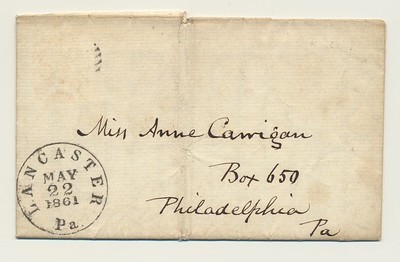 Miss Anne Carrigan
Box 650
Philadelphia
Pa
LANCASTER
MAY
22
1861
Pa.